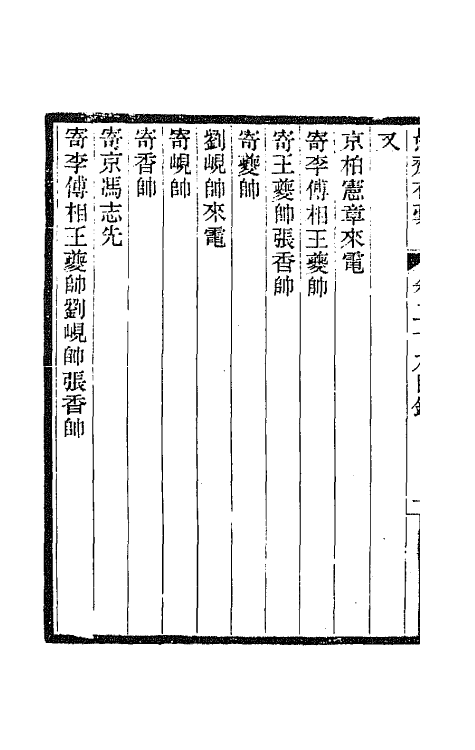 又
京柏憲章來電
寄李傅相王夔帥
寄王夔帥張香帥
寄夔帥
劉峴帥來電
寄峴帥
寄香帥
寄京馮志先
寄李傅相王夔帥劉峴帥張香帥